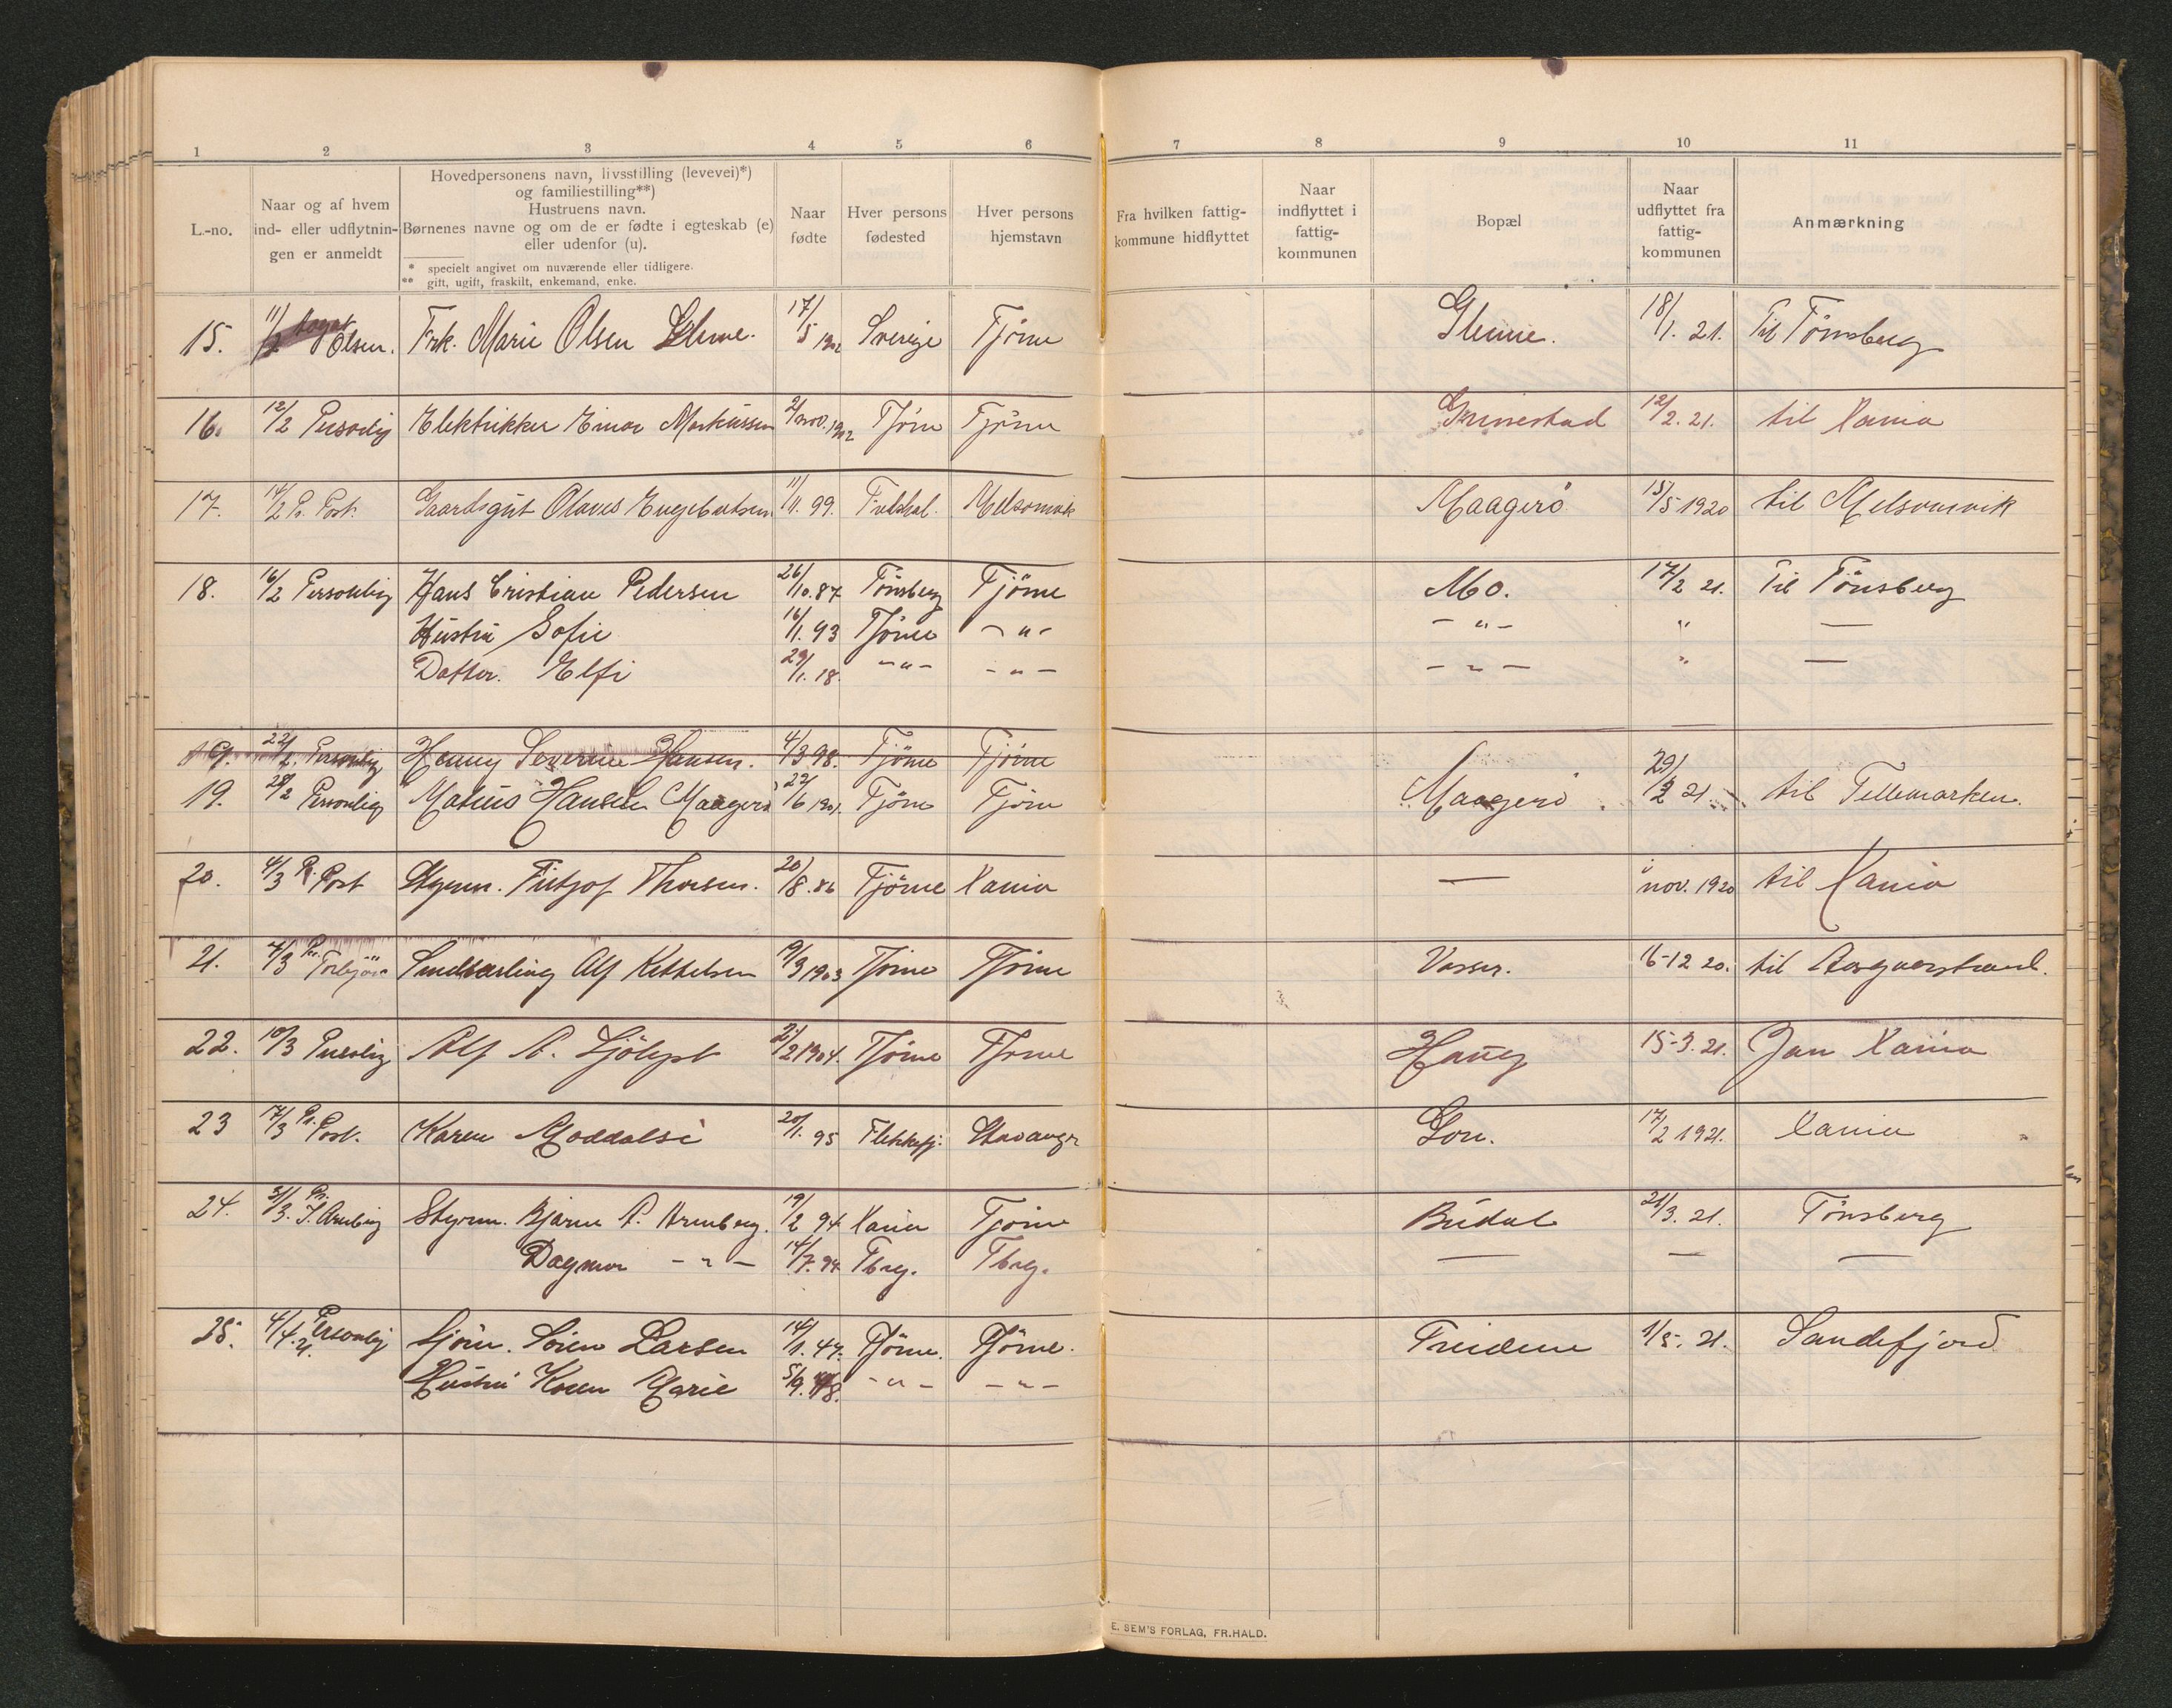 1 2 3 4 5 6 7 8 9 10 11
L.-no.
Naar og af hvem
ind- eller udflytnin-
gen er anmeldt
Hovedpersonens navn, livsstilling (levevei)*)
og familiestilling**)
Hustruens navn.
Børnenes navne og om de er fødte i egteskab (e)
eller udenfor (u).
* specielt angivet om nuværende eller tidligere.
** gift, ugift, fraskilt, enkemand, enke.
Naar
fødte
Hver persons
fødested
Hver persons
hjemstavn
Fra hvilken fattig-
kommune hidflyttet
Naar
indflyttet i
fattig-
kommunen
Bopæl
Naar
udflyttet fra
fattig-
kommunen
Anmærkning
15. 11/2 Olsen. Frk. Marie Olsen Glenne. 17/5 1902 Sverige Tjöme Glenne. 18/1. 21. Til Tönsberg
16. 12/2 Personlig Elektrikker Einar Markussen 2/nov. 1902 Tjöme Tjöme Grimestad 12/2. 21. til Xania
17. 14/2 Pr. Post. Gaardsgut Olaves Engebretsen 11/11. 99. Melsomvik Maagerö 15/5 1920 til Melsomvik
18. 16/2 Personlig Hans Cristian Pedersen 26/10. 87 Tönsberg Tjöme Mo. 17/2 21. Til Tönsberg
Hustru Sofie 16/1. 93 Tjöme - " - - " - " —
Datter. Elfi 29/1. 18. - " - - " - - " - " —
19. 22/2. Personlig Henny Severine Hansen. 4/3 98. Tjöme Tjöme
19. 28/2 Personlig Matius Hansen Maagerö 22/6 1901. Tjöme Tjöme Maagerö 29/2 21. til Tellemarken.
20. 4/3 Pr. Post Styrm. Fritjof Thorsen. 20/8. 86 Tjöme Xania — i nov. 1920 til Xania
21. 7/3 Pr. Torbjörn Smedlærling Alf Kettelsen 19/3 1903 Tjöme Tjöme Vasser. 16-12 20. til Aasgaarstrand.
22. 10/3 Personlig Alf A. Sjölyst 2/2 1904. Tjöme Tjöme Haug 15-3. 21. Jan Xania
23 17/3 Pr. Post. Karen Moddalsi 20/1. 95 Flekkefj. Stavanger Lon. 17/2 1921. Xania
24. 31/3. Pr. J. Arnberg Styrm. Bjarne A. Arnberg. 19/2 94 Xania Tjöme Budal 21/3. 21. Tönsberg
Dagmar - " - 14/7. 94 Tbrg. Tbrg. — — —
25. 4/4. 21. Personlig Sjöm. Sören Larsen 14/1. 47. Tjöme. Tjöme. 1/5. 21. Sandefjord
Hustru Karen Marie 5/9. 48. - " - - " -
E. SEM'S FORLAG, FR.HALD.